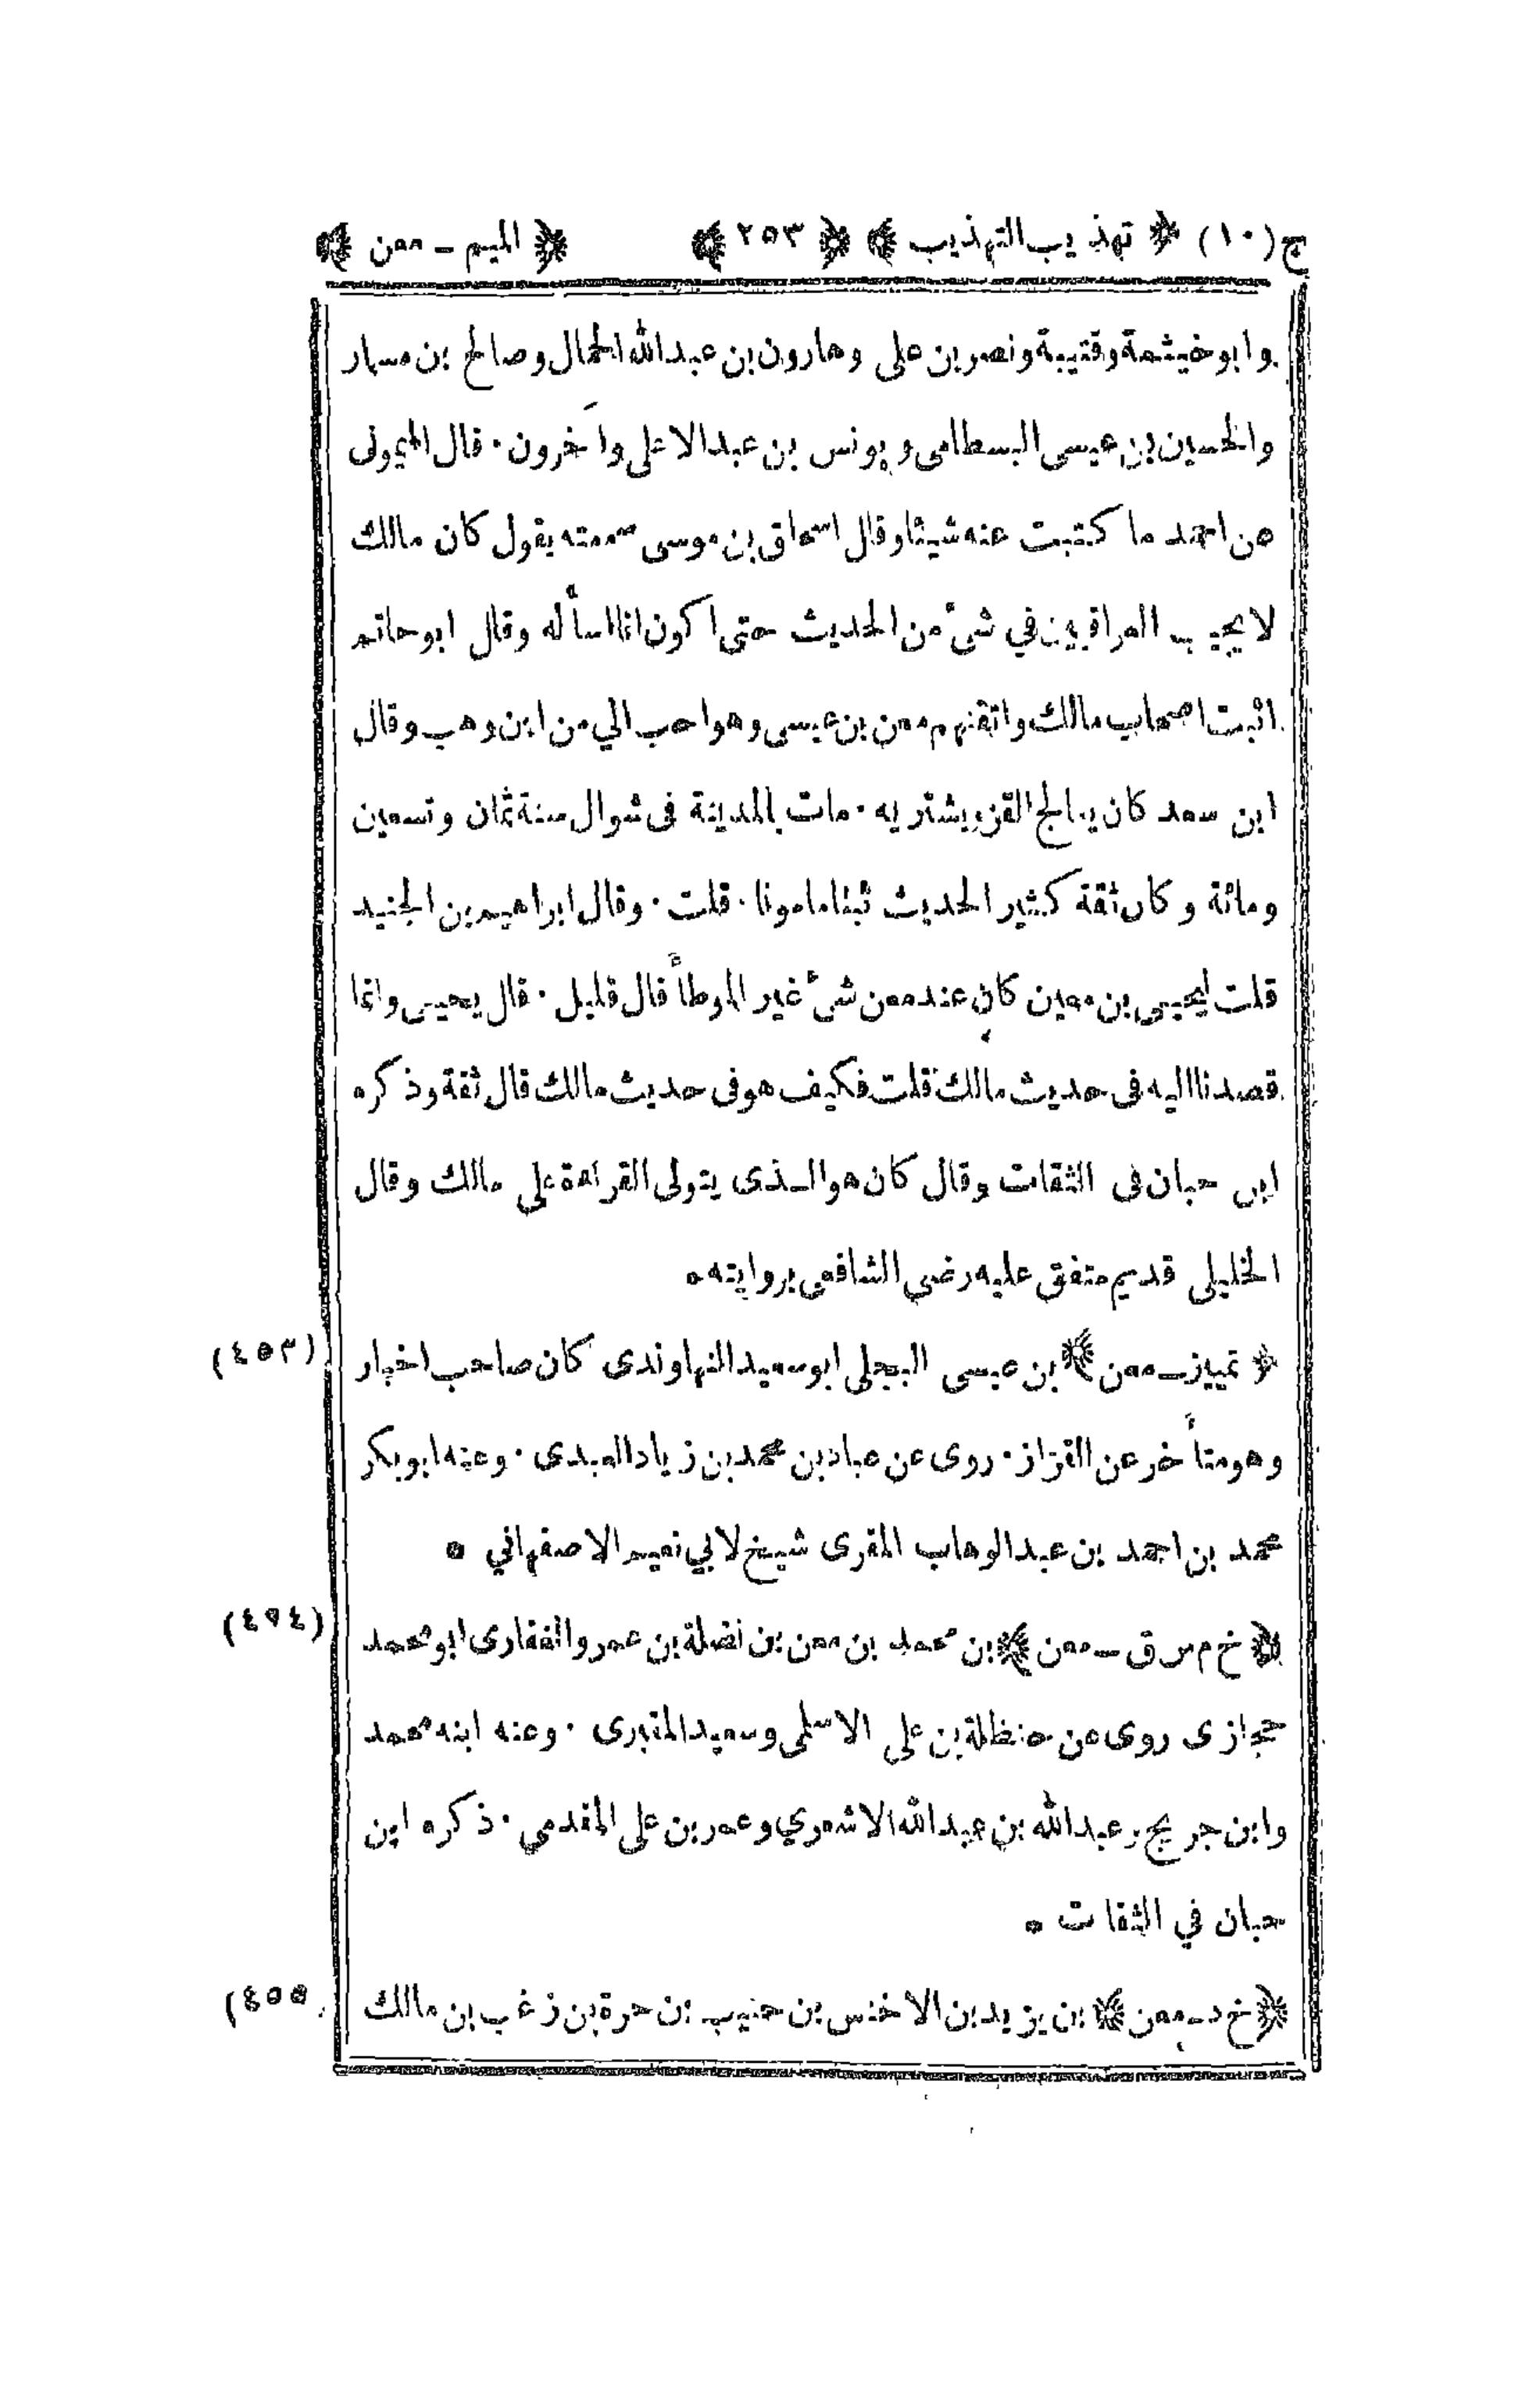 ج (١٠) ﴿ تهذيب التهذيب ﴾ ﴿ ٢٥٣ ﴾ ﴿ الميم ـ معن ﴾
وابو خيثمة وقتيبة ونصر بن على وهارون بن عبدالله الحمال وصالح بن مسمار
والحسين بن عيسى البسطامى ويونس بن عبدالاعلى وآخرون · قال الميمونى
عن احمد ما كتبت عنه شيئا وقال اسحاق بن موسى سمعته يقول كان مالك
لا يجيب العراقيين في شئ من الحديث حتى اكون انا اسأله وقال ابو حاتم
اثبت اصحاب مالك واتقنهم معن بن عيسى وهو احب الي من ابن وهب وقال
ابن سعد كان يعالج القز ويشتريه · مات بالمدينة فى شوال سنة ثمان وتسعين
ومائة وكان ثقة كثير الحديث ثبتا مامونا · قلت · وقال ابراهيم بن الجنيد
قلت ليحيى بن معين كان عند معن شئ غير الموطأ قال قليل · قال يحيى وانما
قصدنا اليه فى حديث مالك قلت فكيف هو فى حديث مالك قال ثقة وذكره
ابن حبان فى الثقات وقال كان هو الـذى يتولى القراءة على مالك وقال
الخليلى قديم متفق عليه رضى الشافعى بروايته ٥
﴿ تمييز ـ معن ﴾ بن عيسى البجلى ابو سعيد النهاوندى كان صاحب اخبار (٤٥٣)
وهو متأخر عن القزاز · روى عن عباد بن محمد بن زياد العبدى · وعنه ابو بكر
محمد بن احمد بن عبدالوهاب المقرى شيخ لابي نعيم الاصفهاني ٥
﴿ خ م س ق ـ معن ﴾ بن محمد بن معن بن نضلة بن عمرو الغفارى ابو محمد (٤٥٤)
حجازى روى عن حنظلة بن على الاسلمى وسعيد المقبرى · وعنه ابنه محمد
وابن جريج وعبدالله بن عبدالله الاشعري وعمر بن على المقدمي · ذكره ابن
حبان في الثقات ٥
﴿ خ د ـ معن ﴾ بن يزيد بن الاخنس بن حبيب بن حرة بن زغب بن مالك (٤٥٥)